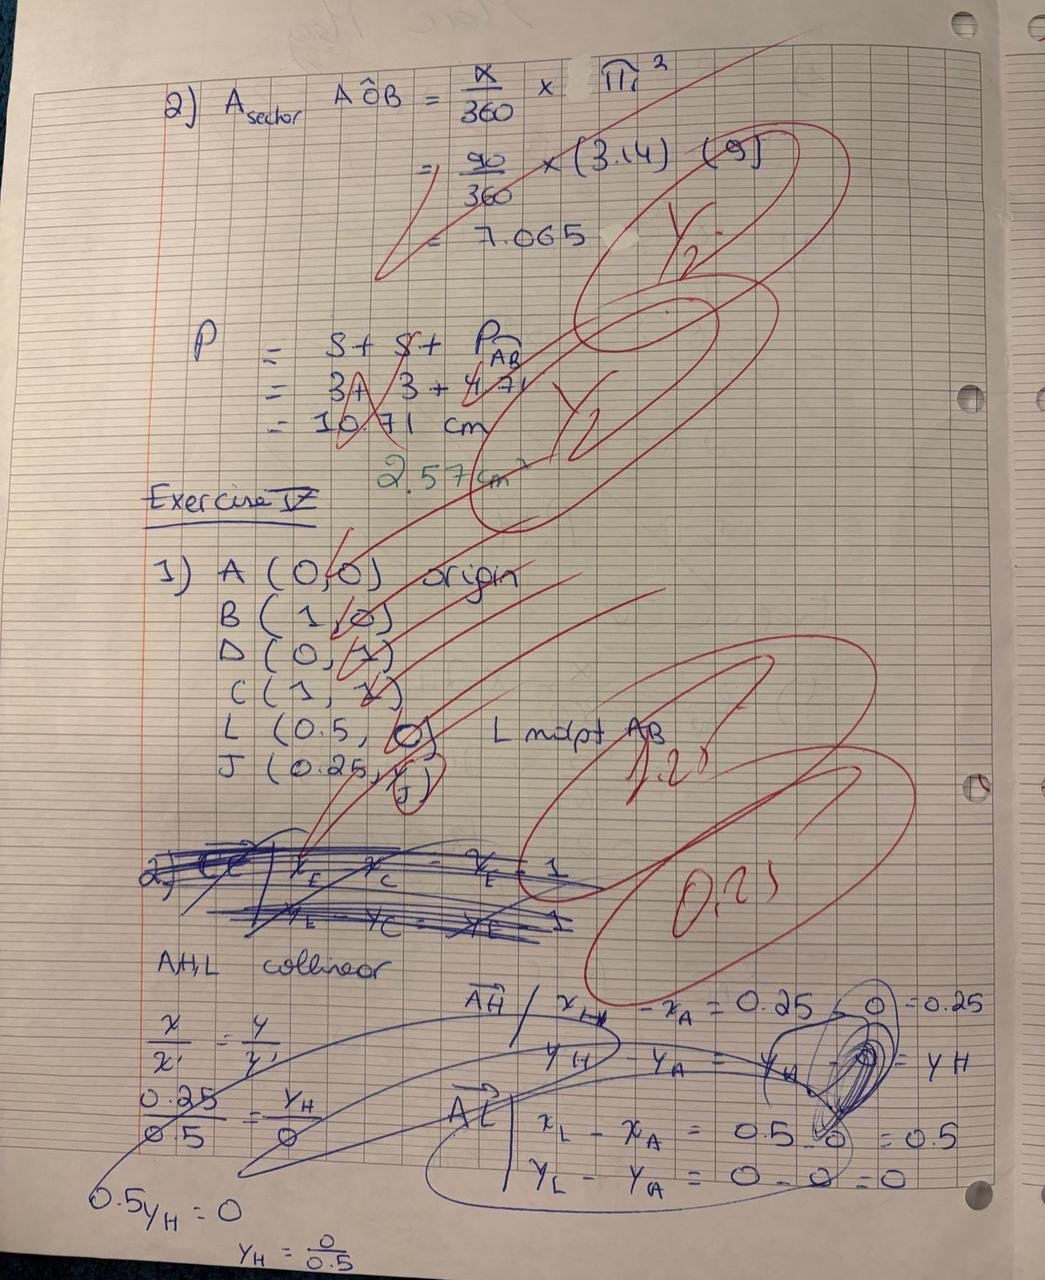 2) A sector AÔB = x/360 × πr²
= 90/360 × (3.14) (9)
= 7.065
1/2
P = S + S + P AB
= 3 + 3 + 4.71
= 10.71 cm
1/2
2.57 cm²
Exercise IV
1) A (0,0) origin
B (1,0)
D (0,1)
C (1,1)
L (0.5, 0) L mdpt AB
J (0.25, yJ)
1.25
2)
xE xC - xE = 1
yE - yC = yE 1
0.25
AH,L collinear
AH / xH - xA = 0.25 - 0 = 0.25
x/x' = y/y'
yH - yA = yH - 0 = yH
0.25/0.5 = yH/0
AL | xL - xA = 0.5 - 0 = 0.5
yL - yA = 0 - 0 = 0
0.5yH = 0
yH = 0/0.5